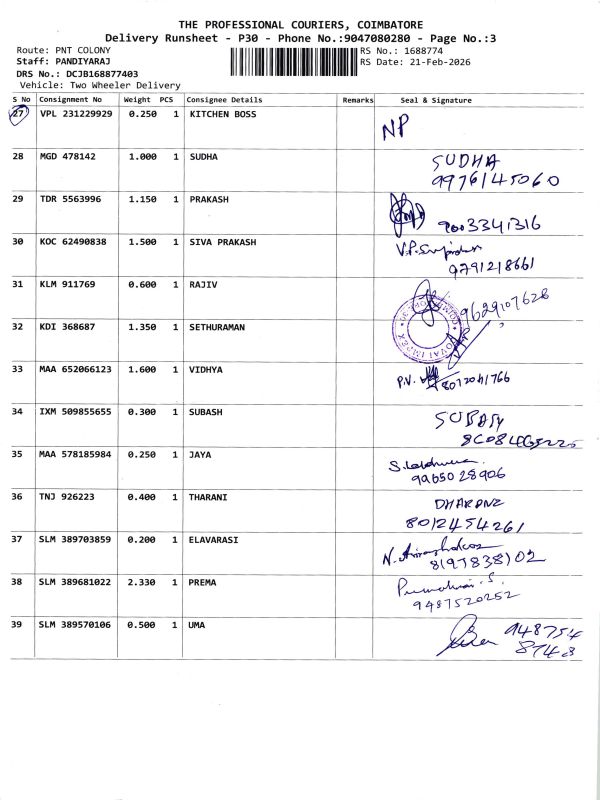 THE PROFESSIONAL COURIERS, COIMBATORE
Delivery Runsheet - P30 - Phone No.:9047080280 - Page No.:3
Route: PNT COLONY RS No.: 1688774
Staff: PANDIYARAJ RS Date: 21-Feb-2026
DRS No.: DCJB168877403
Vehicle: Two Wheeler Delivery
S No Consignment No Weight PCS Consignee Details Remarks Seal & Signature
27 VPL 231229929 0.250 1 KITCHEN BOSS
NP
28 MGD 478142 1.000 1 SUDHA
SUDHA
9976145060
29 TDR 5563996 1.150 1 PRAKASH
9003341316
30 KOC 62490838 1.500 1 SIVA PRAKASH
9791218661
31 KLM 911769 0.600 1 RAJIV
9629107628
32 KDI 368687 1.350 1 SETHURAMAN
33 MAA 652066123 1.600 1 VIDHYA
P.V. 8072041766
34 IXM 509855655 0.300 1 SUBASH
35 MAA 578185984 0.250 1 JAYA
9965028906
36 TNJ 926223 0.400 1 THARANI
8012454261
37 SLM 389703859 0.200 1 ELAVARASI
8197838102
38 SLM 389681022 2.330 1 PREMA
9487520252
39 SLM 389570106 0.500 1 UMA
948754
8743